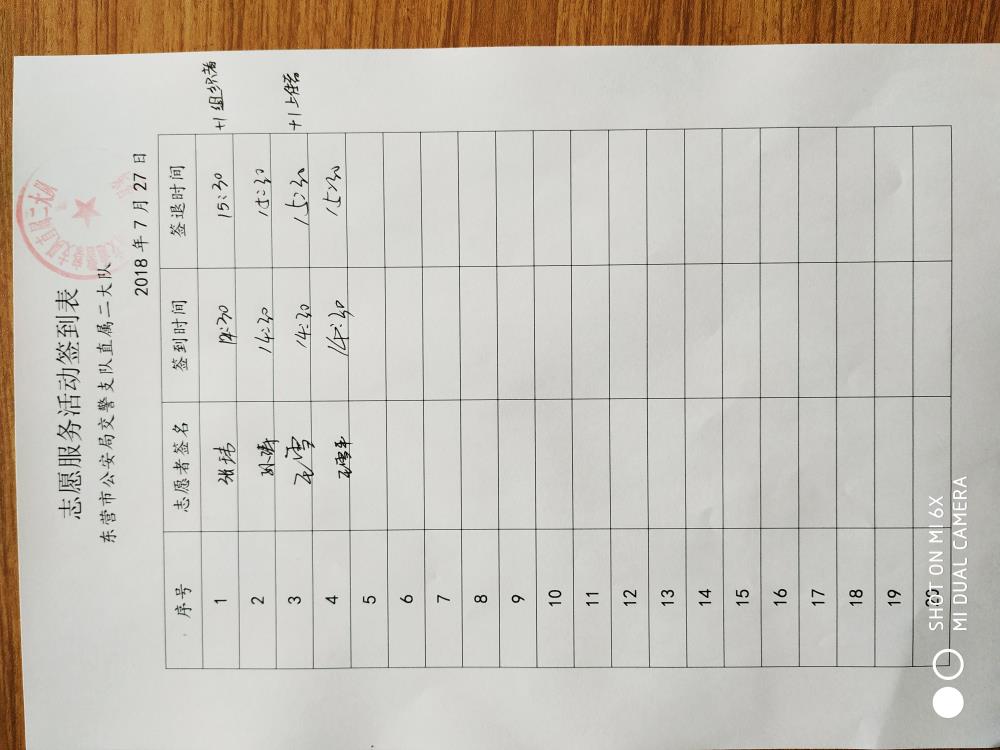 志愿服务活动签到表
东营市公安局交警支队直属二大队
2018 年 7 月 27 日
序号 志愿者签名 签到时间 签退时间
1 张玮 14:30 15:30 +1 组织者
2 14:30 15:30
3 王雪 14:30 15:30 +1 上传者
4 14:30 15:30
5
6
7
8
9
10
11
12
13
14
15
16
17
18
19
20
SHOT ON MI 6X
MI DUAL CAMERA